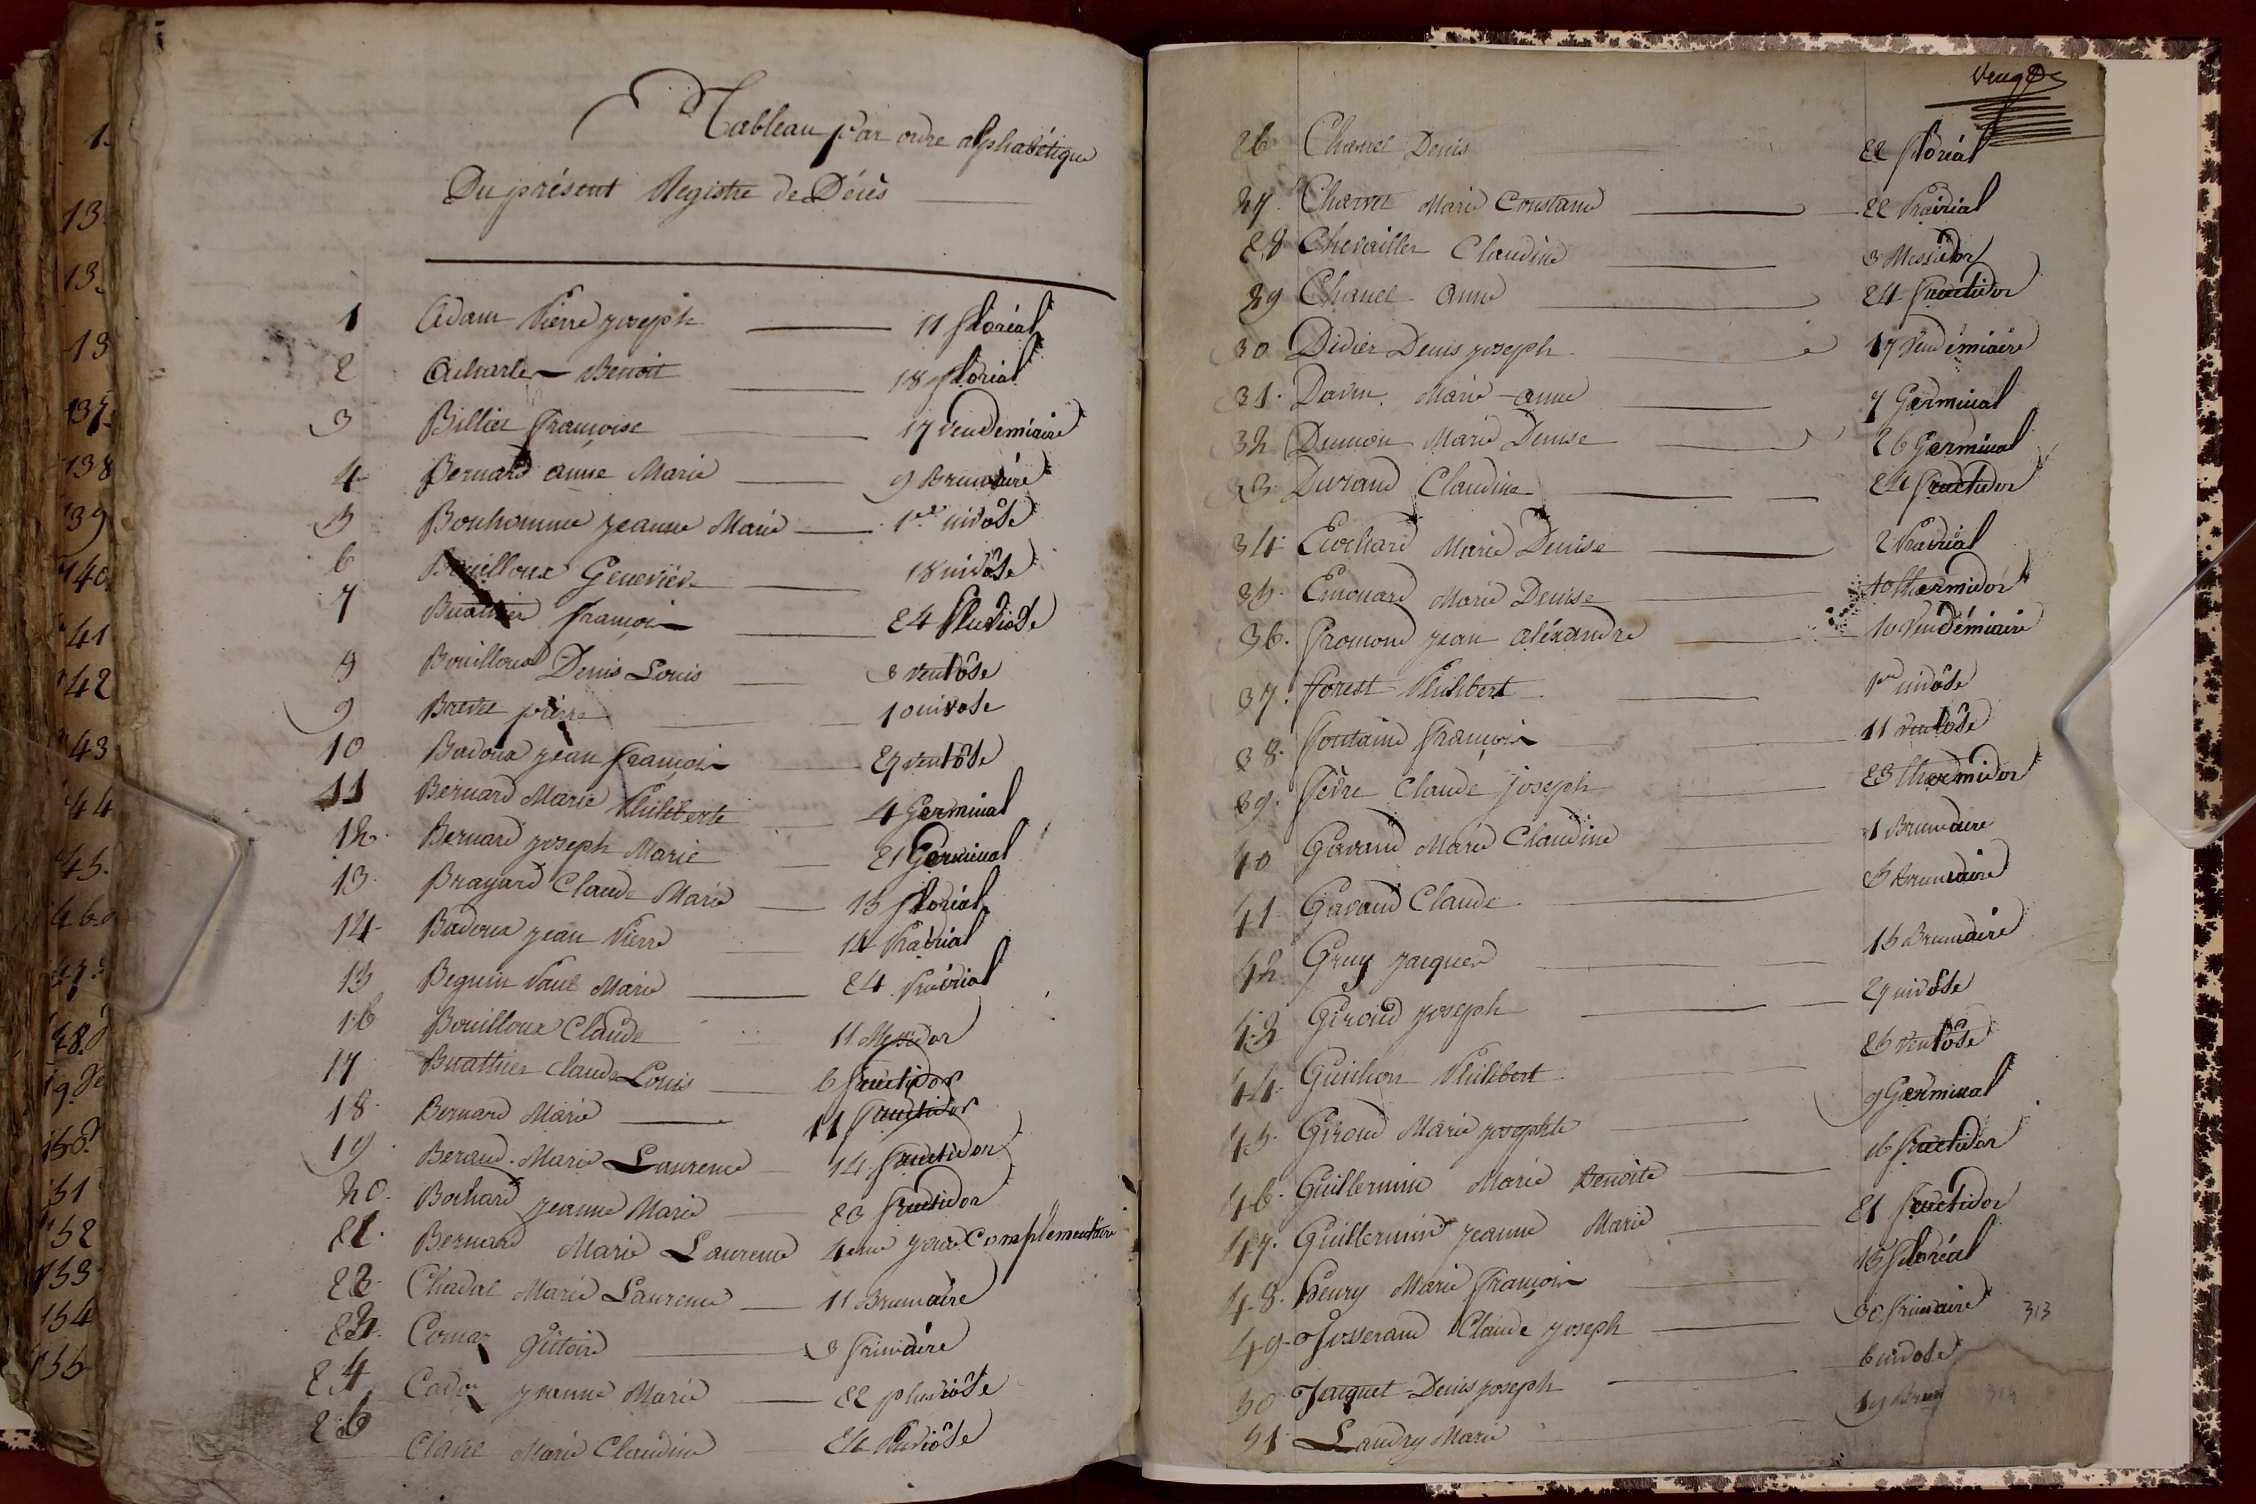 Tableau par ordre alphabétique
Du présent Registre de Décès
1 Adam Pierre joseph 11 floréal
2 Benoit 18 floréal
3 Billier françoise 17 vendemiaire
4 Bernard anne Marie 9 Brumaire
5 Bonhomme jeanne Marie 1er nivôse
6 Bouilloux Geneviève 18 nivôse
7 Buathier françois 24 Pluviose
8 Bouilloux Denis Louis 8 ventôse
9 pierre 10 nivose
10 Badoux jean françois 29 ventôse
11 Bernard Marie Philiberte 4 Germinal
12 Bernard joseph Marie 21 Germinal
13 Brayard Claude Marie 15 floréal
14 Badoux jean Pierre 14 Prairial
15 Beguin Paul Marie 24 Prairial
16 Bouilloux Claude 11 Messidor
17 Buathier Claude Louis 6 fructidor
18 Bernard Marie 11 fructidor
19 Beraud Marie Laurence 14 fructidor
20 Bochard jeanne Marie 23 fructidor
21 Bernard Marie Laurence 4eme jour Complementaire
22 Chadal Marie Laurence 11 Brumaire
23 8 frimaire
24 jeanne Marie 22 pluviôse
Claire Marie Claudine 24 Pluviôse
26 Charvet Denis 22 floréal
27 Charvet Marie Constance 22 Prairial
28 Chevailler Claudine 3 Messidor
29 Chanel anne 24 fructidor
30 Didier Denis joseph 17 vendémiaire
31 Marie anne 7 Germinal
32 Dumon Marie Denise 26 Germinal
33 Durand Claudine 24 fructidor
34 Marie Denise 2 Prairial
35 Emonard Marie Denise 10 thermidor
36 Fromond jean aléxandre 10 vendémiaire
37 Forest Philibert 1er nivôse
38 Fontaine françois 11 ventôse
39 Fèvre Claude joseph 23 thermidor
40 Gavand Marie Claudine 1 Brumaire
41 Gavand Claude 5 Brumaire
42 Gruy jacques 15 Brumaire
43 Giroud joseph 29 nivôse
44 Guichon Philibert 25 ventôse
45 Giroud Marie josephte 9 Germinal
46 Guillermin Marie Benoite 16 fructidor
47 Guillermin jeanne Marie 21 fructidor
48 Henry Marie françois 15 floréal
49 Josserand Claude joseph 30 frimaire 313
50 Jaquet Denis joseph 6 nivose
51 Landry Marie
1
13
13
13
137
138
139
140
41
42
43
44
45
46
47
48
49
150
151
152
153
154
155